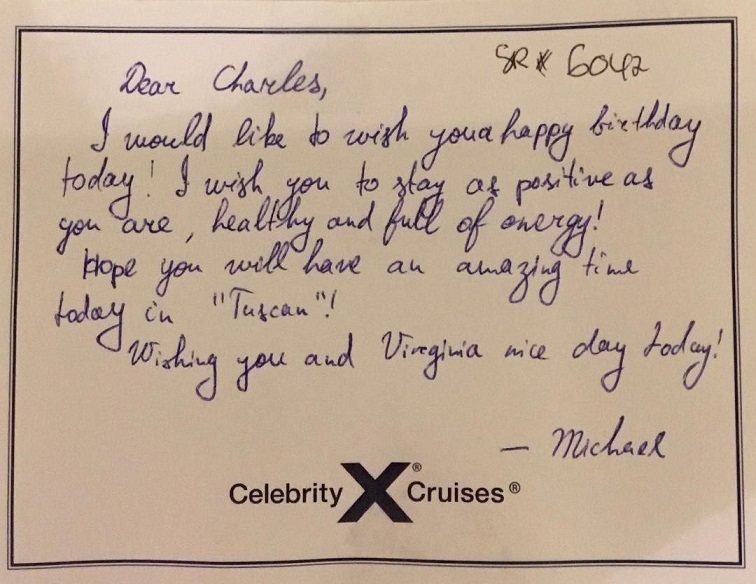 SR# 6042
Dear Charles,
I would like to wish you a happy birthday
today! I wish you to stay as positive as
you are, healthy and full of energy!
Hope you will have an amazing time
today in "Tuscan"!
Wishing you and Virginia nice day today!
— Michael
Celebrity X® Cruises®